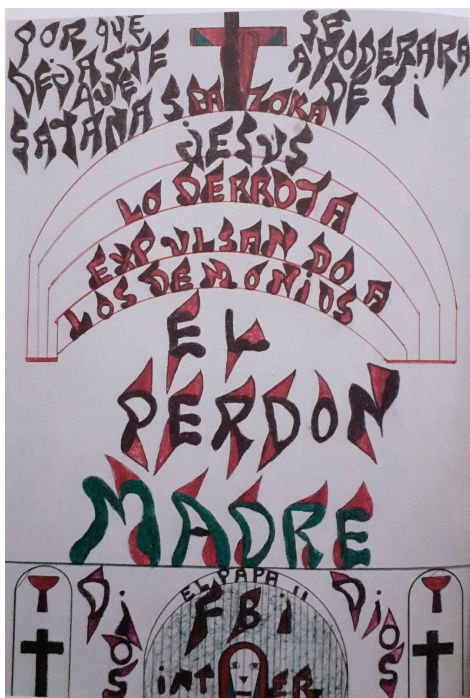 POR QUE
DEJASTE
QUE
SATANA S
SE
APODERARA
DE TI
JESUS
LO DERROTA
EXPULSANDO A
LOS DEMONIOS
EL
PERDON
MADRE
DIOS
EL PAPA II
FBi
iNT ER
DIOS